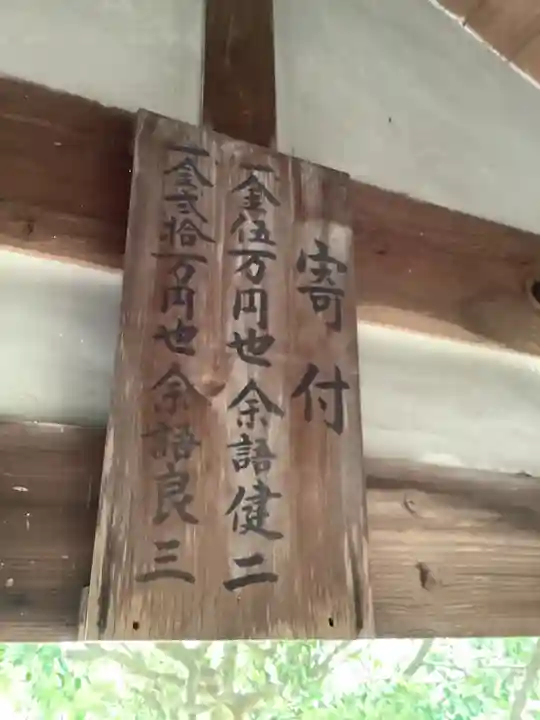 寄付
一金伍万円也 余語健二
一金弐拾万円也 余語良三